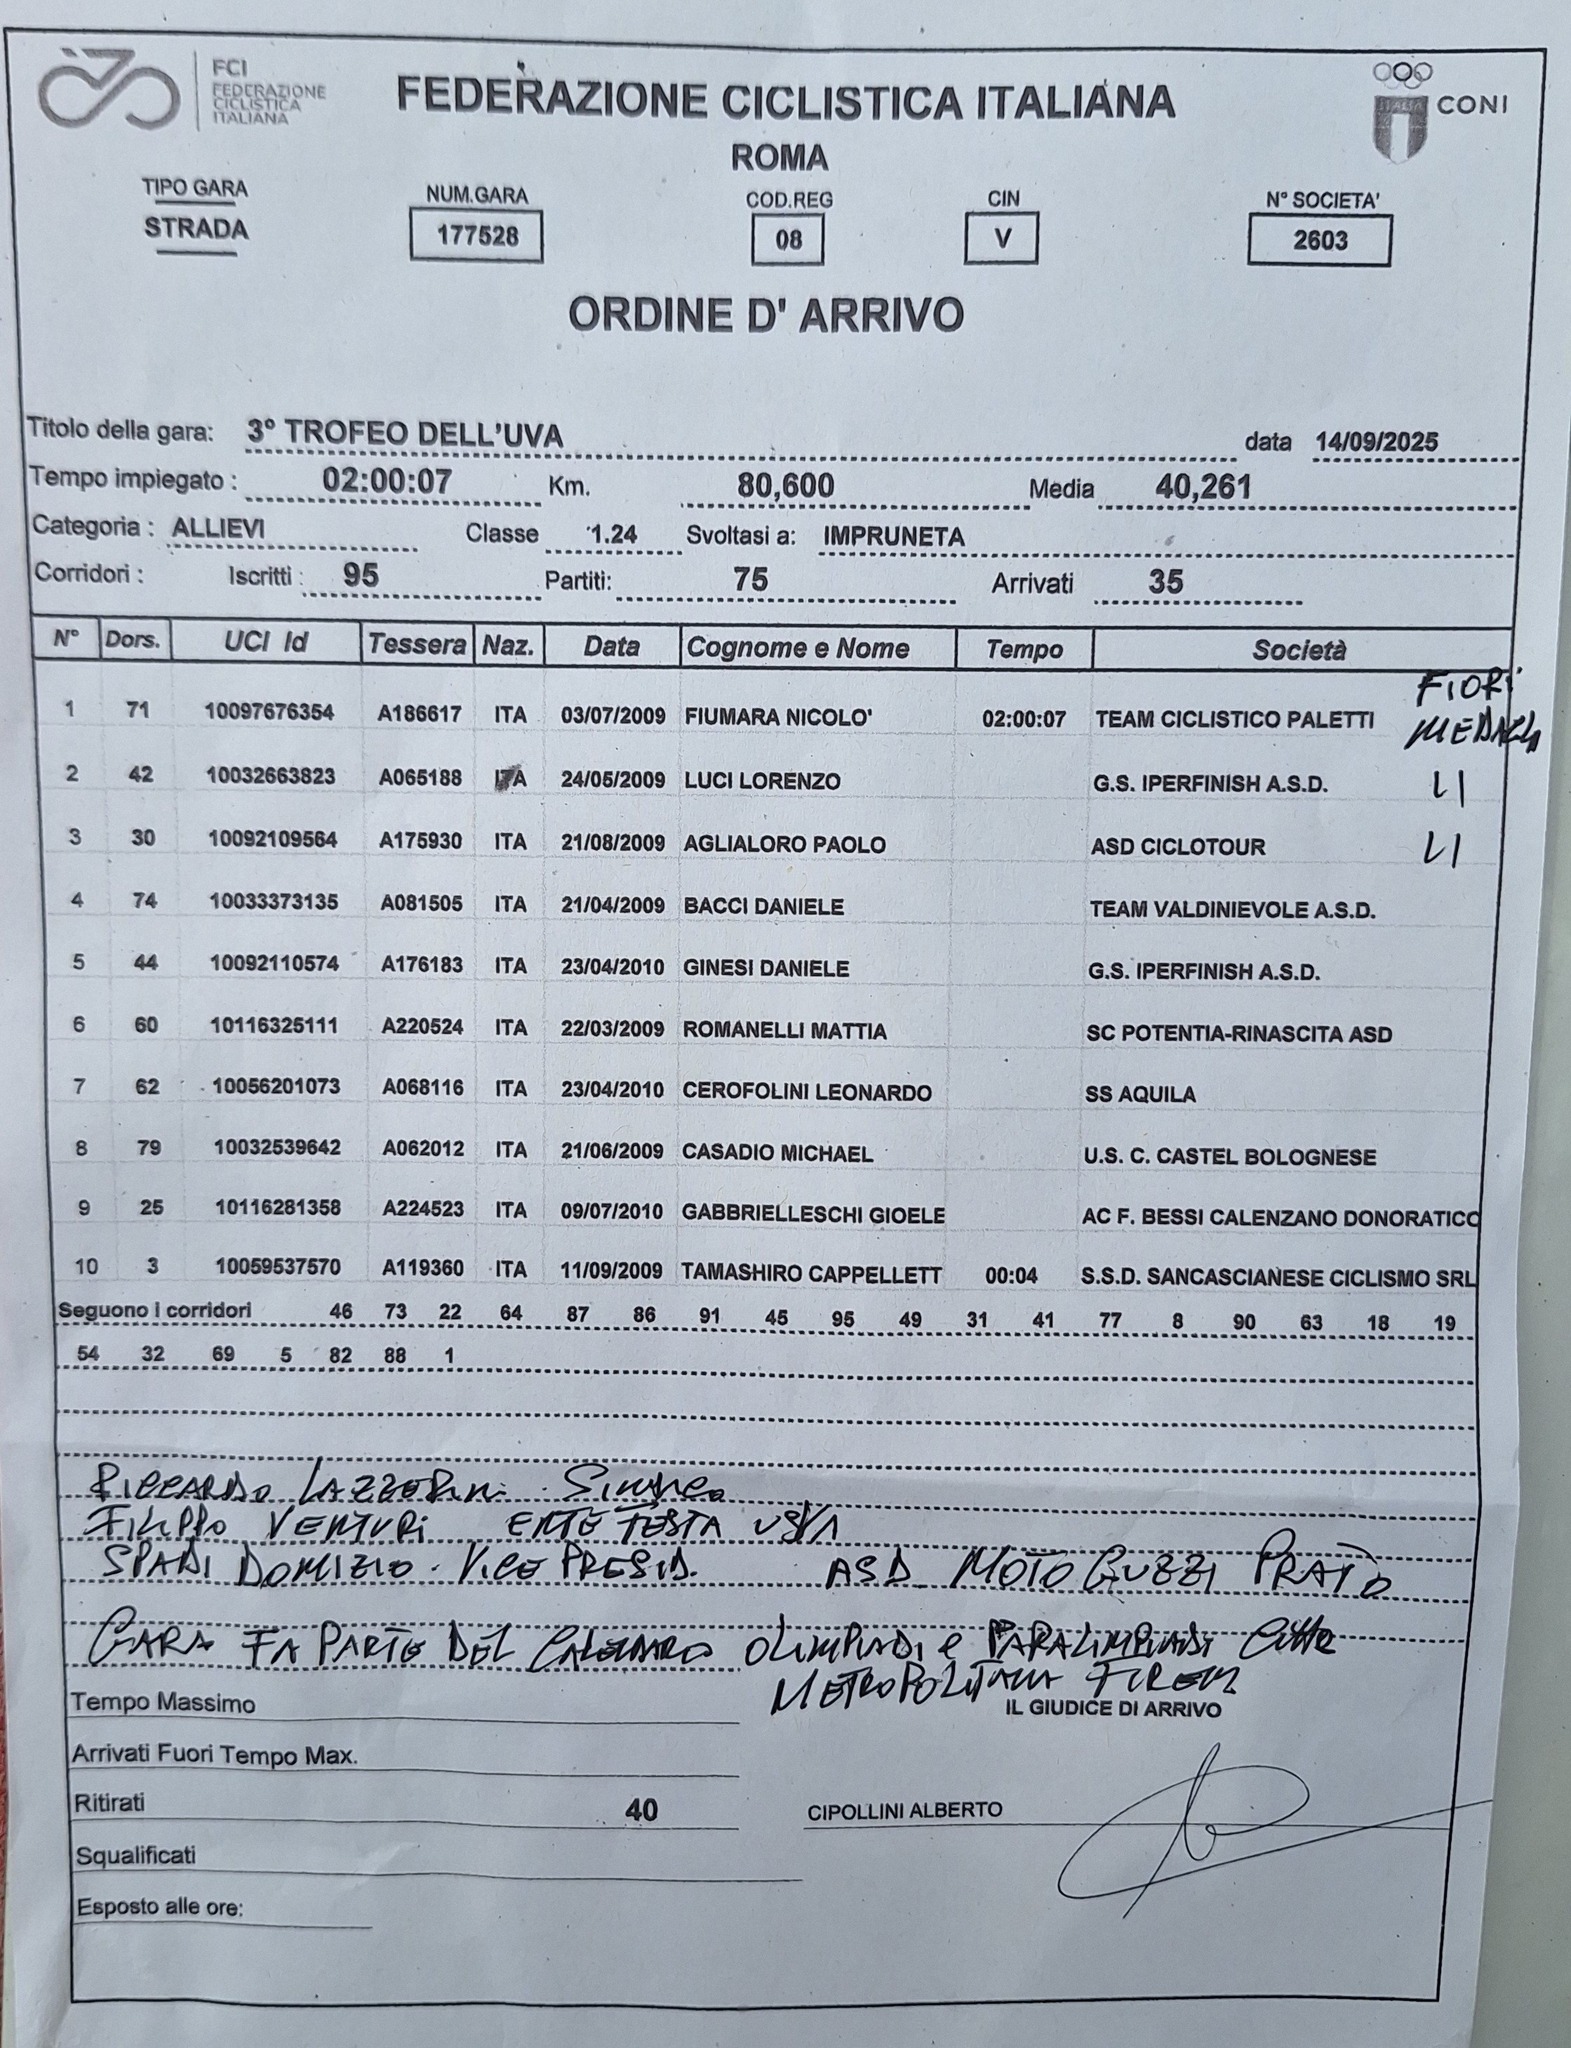 FCI
FEDERAZIONE
CICLISTICA
ITALIANA
FEDERAZIONE CICLISTICA ITALIANA
ITALIA
CONI
ROMA
TIPO GARA NUM.GARA COD.REG CIN N° SOCIETA'
STRADA 177528 08 V 2603
ORDINE D' ARRIVO
Titolo della gara: 3° TROFEO DELL'UVA data 14/09/2025
Tempo impiegato : 02:00:07 Km. 80,600 Media 40,261
Categoria : ALLIEVI Classe 1.24 Svoltasi a: IMPRUNETA
Corridori : Iscritti : 95 Partiti: 75 Arrivati 35
N° Dors. UCI Id Tessera Naz. Data Cognome e Nome Tempo Società
FIORI
1 71 10097676354 A186617 ITA 03/07/2009 FIUMARA NICOLO' 02:00:07 TEAM CICLISTICO PALETTI
2 42 10032663823 A065188 ITA 24/05/2009 LUCI LORENZO G.S. IPERFINISH A.S.D.
3 30 10092109564 A175930 ITA 21/08/2009 AGLIALORO PAOLO ASD CICLOTOUR
4 74 10033373135 A081505 ITA 21/04/2009 BACCI DANIELE TEAM VALDINIEVOLE A.S.D.
5 44 10092110574 A176183 ITA 23/04/2010 GINESI DANIELE G.S. IPERFINISH A.S.D.
6 60 10116325111 A220524 ITA 22/03/2009 ROMANELLI MATTIA SC POTENTIA-RINASCITA ASD
7 62 10056201073 A068116 ITA 23/04/2010 CEROFOLINI LEONARDO SS AQUILA
8 79 10032539642 A062012 ITA 21/06/2009 CASADIO MICHAEL U.S. C. CASTEL BOLOGNESE
9 25 10116281358 A224523 ITA 09/07/2010 GABBRIELLESCHI GIOELE AC F. BESSI CALENZANO DONORATICO
10 3 10059537570 A119360 ITA 11/09/2009 TAMASHIRO CAPPELLETT 00:04 S.S.D. SANCASCIANESE CICLISMO SRL
Seguono i corridori 46 73 22 64 87 86 91 45 95 49 31 41 77 8 90 63 18 19
54 32 69 5 82 88 1
RICCARDO LAZZERINI SINDACO
FILIPPO VENTURI ENTE FESTA UVA
SPADI DOMIZIO. VICE PRESID. ASD MOTO GUZZI PRATO
GARA FA PARTE DEL CALENDARIO OLIMPIADI e PARALIMPIADI Città
METROPOLITANA FIRENZE
Tempo Massimo
IL GIUDICE DI ARRIVO
Arrivati Fuori Tempo Max.
Ritirati 40
CIPOLLINI ALBERTO
Squalificati
Esposto alle ore: